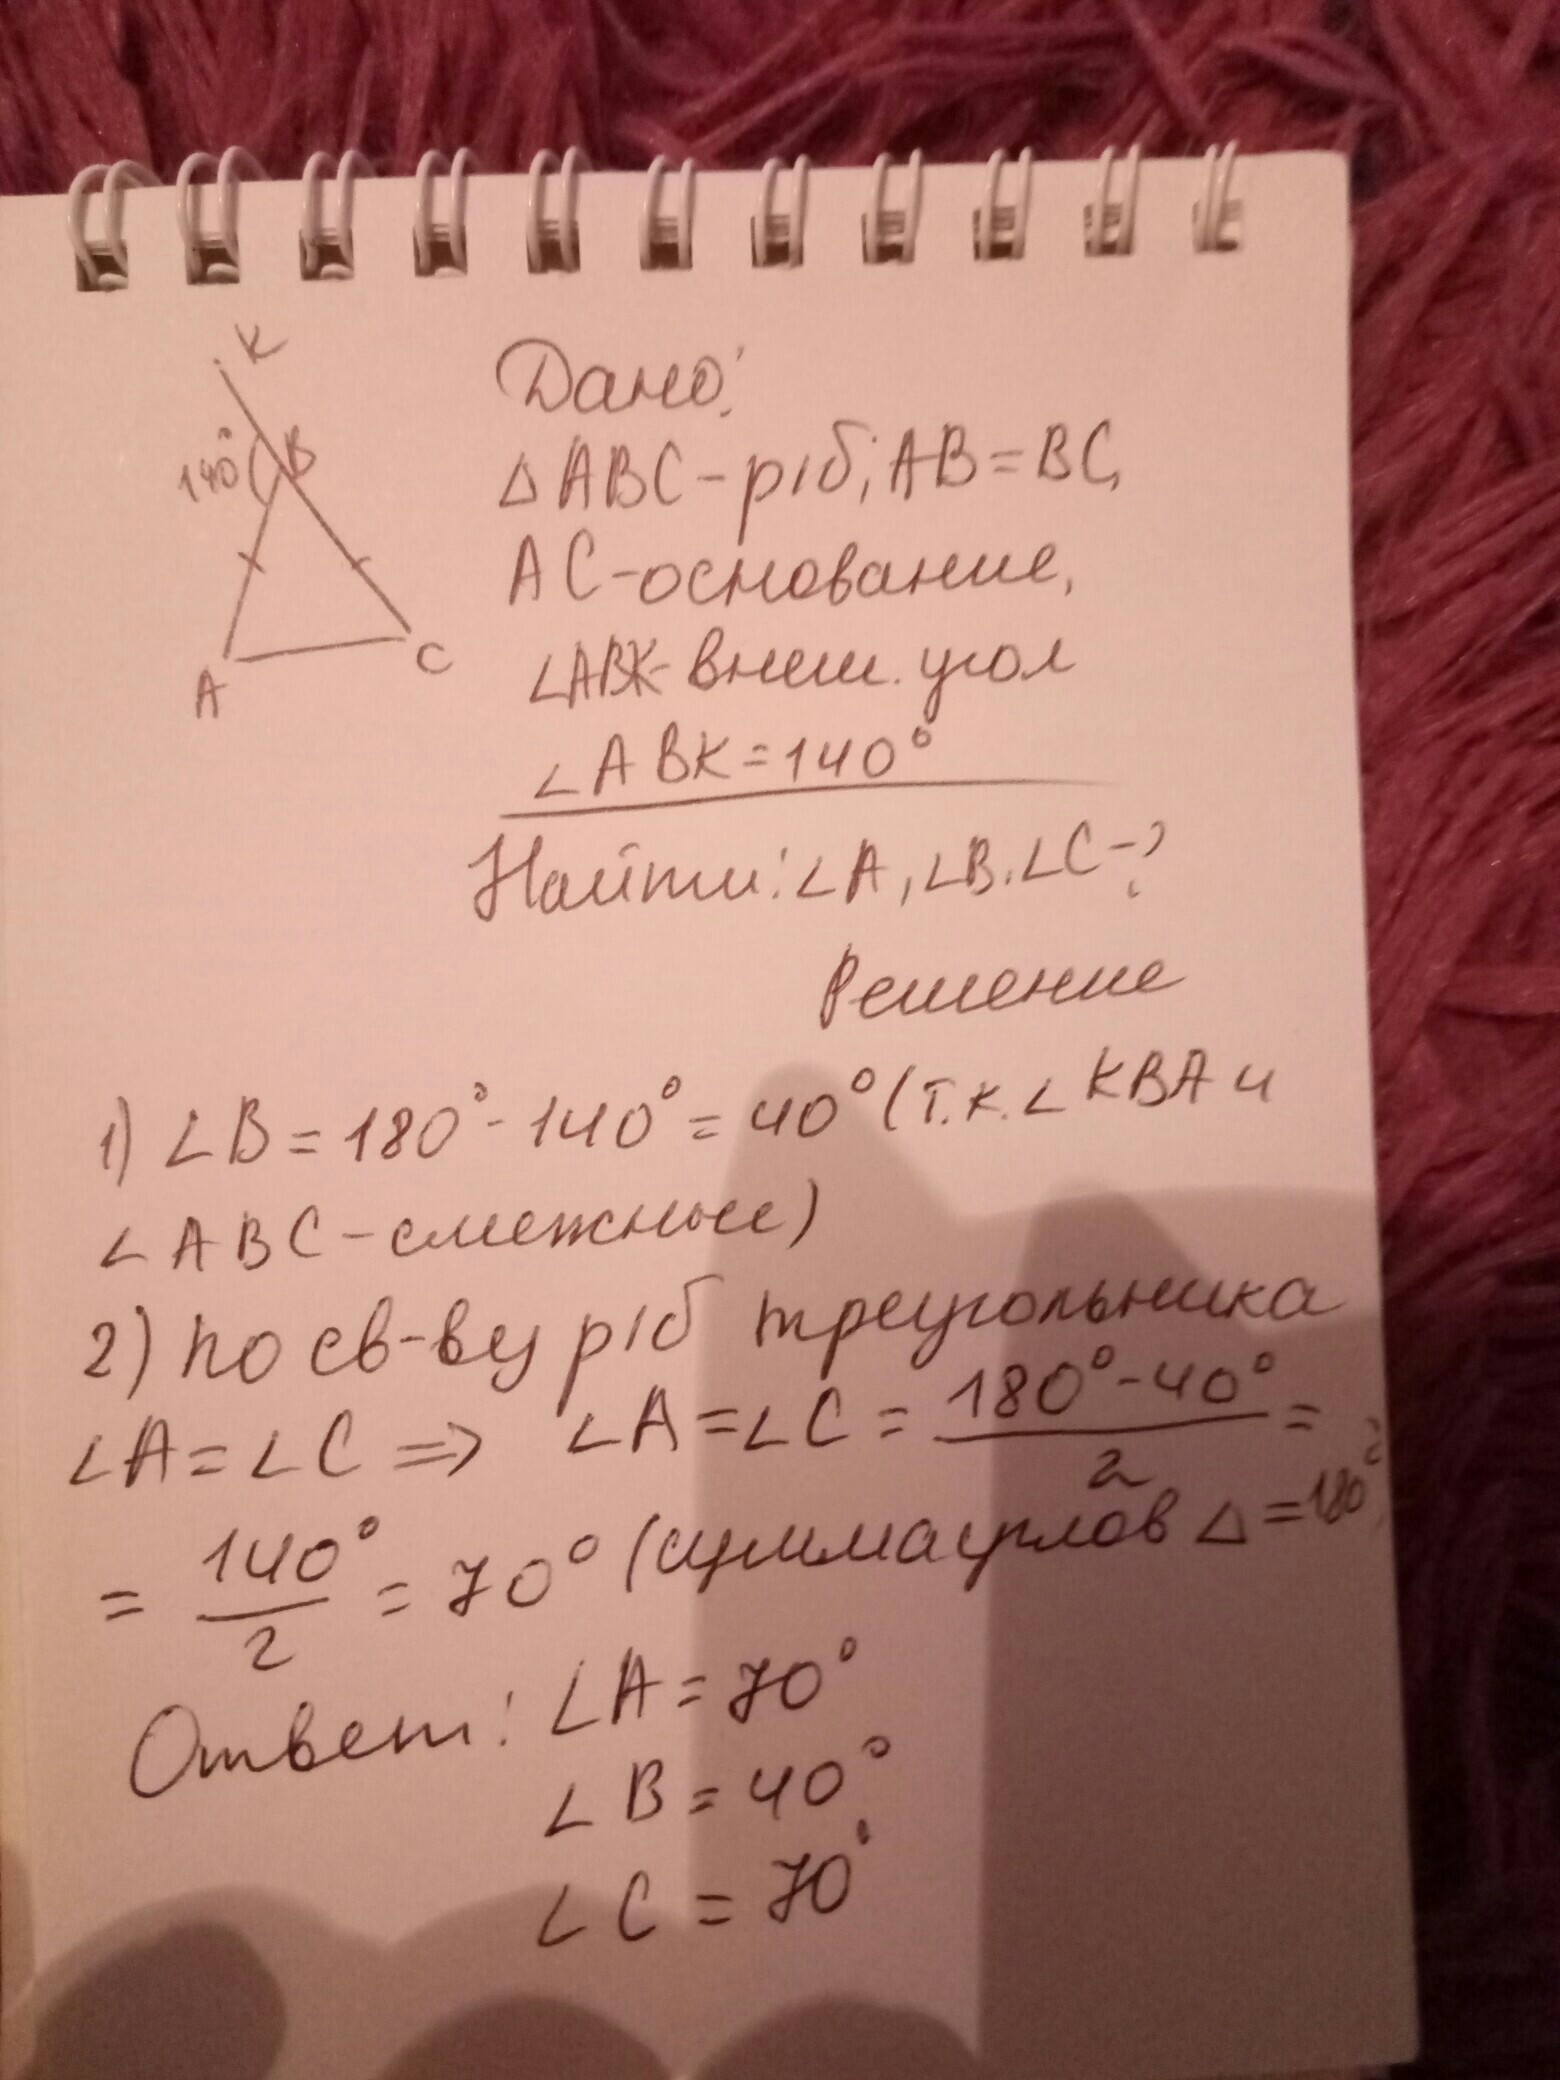 K
140°
B
A
C
Дано:
△ABC - р/б; AB = BC,
AC - основание,
∠ABK - внеш. угол
∠ABK = 140°
Найти: ∠A, ∠B, ∠C - ?
Решение
1) ∠B = 180° - 140° = 40° (т.к. ∠KBA и
∠ABC - смежные)
2) по св-ву р/б треугольника
∠A = ∠C => ∠A = ∠C = (180° - 40°)/2 =
= 140°/2 = 70° (сумма углов △ = 180°)
Ответ: ∠A = 70°
∠B = 40°
∠C = 70°